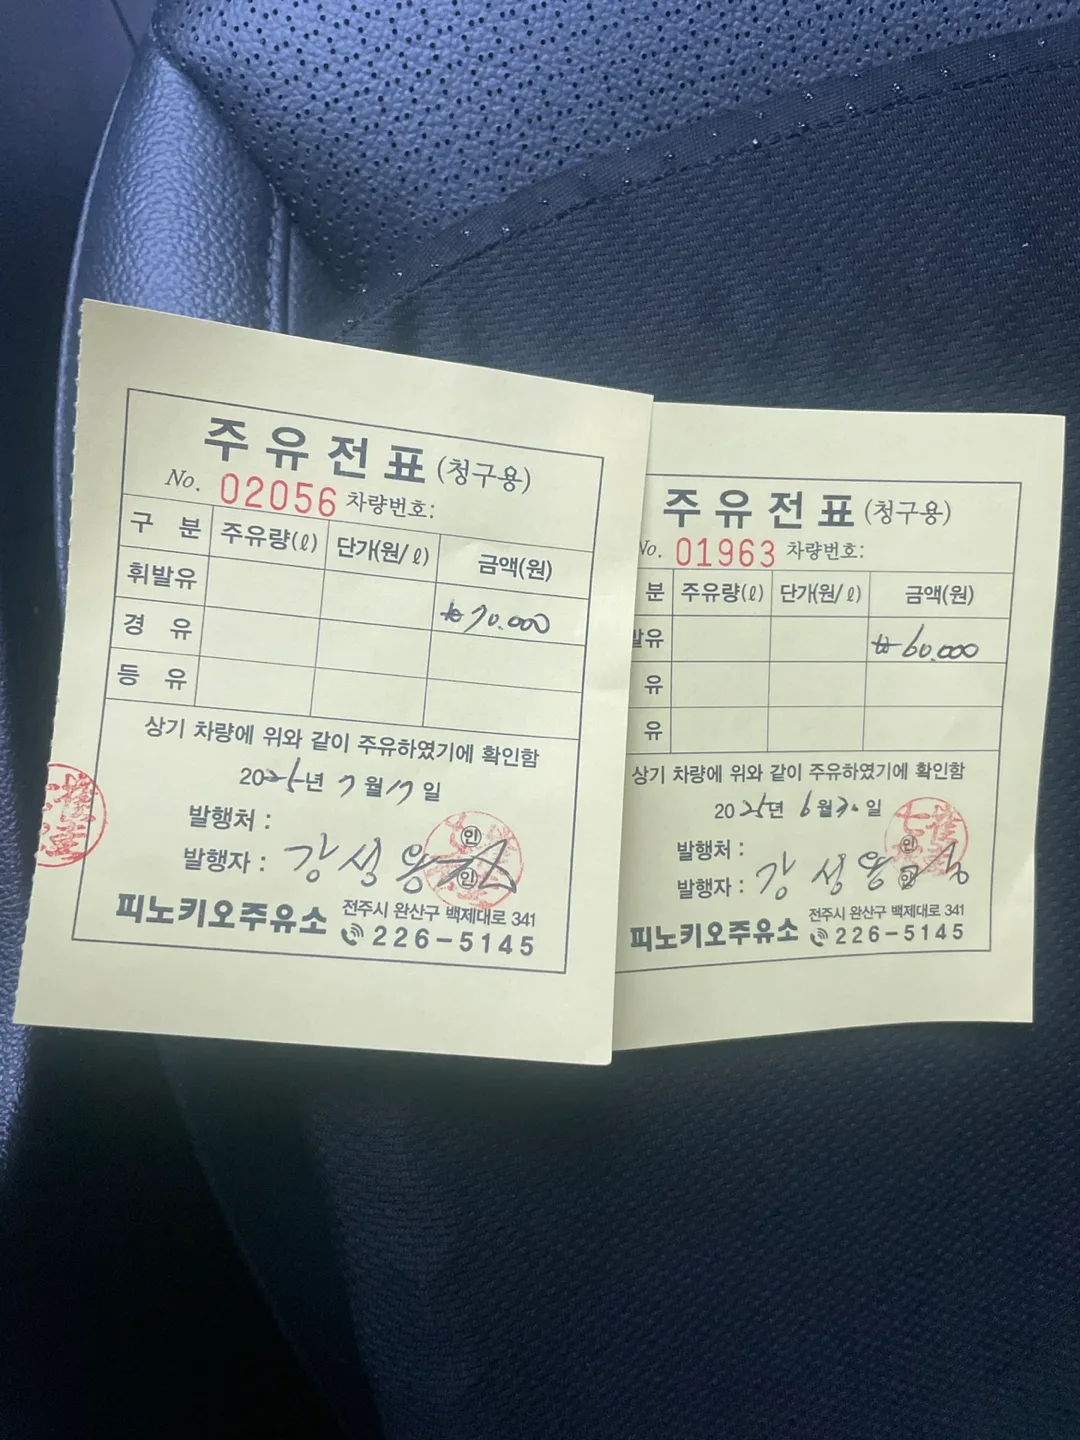 주유전표(청구용)
No. 02056 차량번호:
구 분 주유량(ℓ) 단가(원/ℓ) 금액(원)
휘발유 ₩70.000
경 유
등 유
상기 차량에 위와 같이 주유하였기에 확인함
2025년 7월 17일
발행처 :
발행자 : 강성용 인
인
피노키오주유소 전주시 완산구 백제대로 341
226-5145
주유전표(청구용)
No. 01963 차량번호:
분 주유량(ℓ) 단가(원/ℓ) 금액(원)
발유 ₩60.000
유
유
상기 차량에 위와 같이 주유하였기에 확인함
2025년 6월 30일
발행처 : 인
발행자 : 강성용 인
피노키오주유소 전주시 완산구 백제대로 341
226-5145